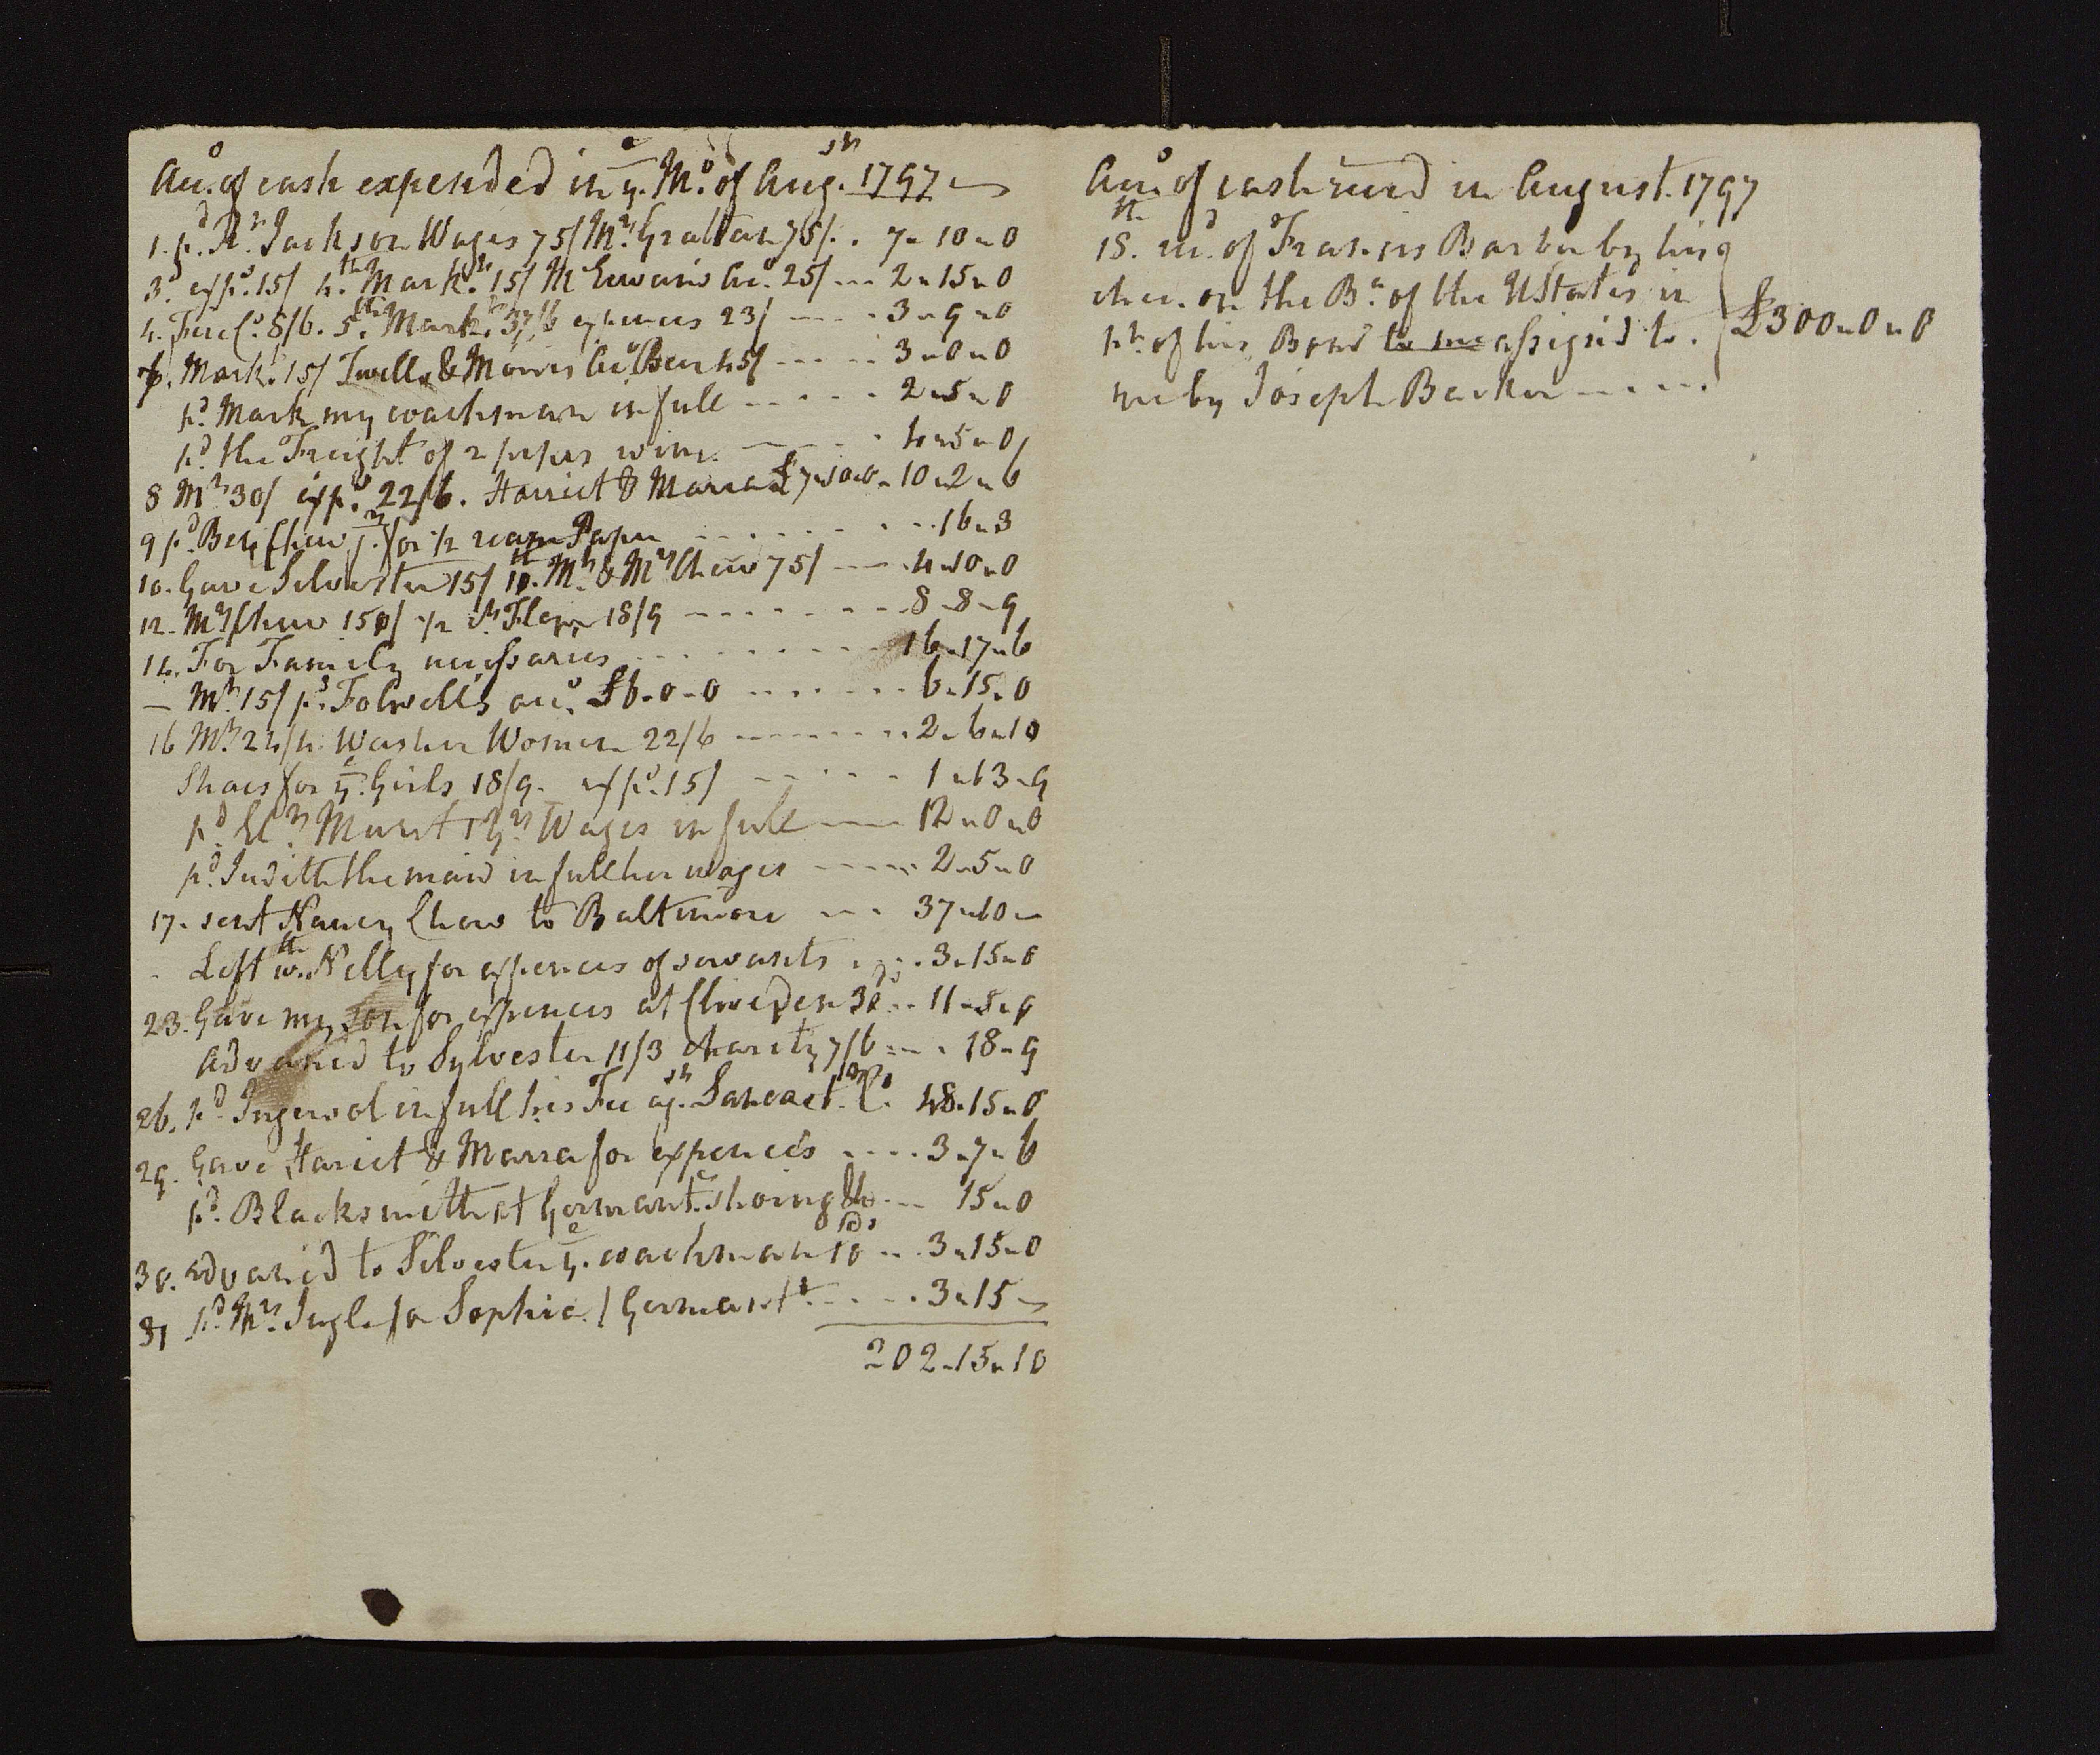 Acc.o of cash expended in ye. Mo. of Augst. 1797
1. pd. Jackson Wages 75/ Mrs. Grattan 75/. . 7-10-0
3d. exps. 15/ 4th. Markt. 15/ Acco. 25/ --- 2-15-0
4. 8/6. 5th. Markt. 37/6 expences 23/ ---- 3-9-0
Mark. 15/ Twells & Morris Acco. Beer 45/ ----- 3-0-0
pd. Mark my coachman in full ----- 2-5-0
pd. the Freight of 2 pipes wine. ---- 4-5-0
8 Mr. 30/ exps. 22/6. Harriet & Maria £7-10-0 - 10-2-6
9 pd. Benj Chew Jr. for 1/2 ream Paper ------- 16-3
10. Gave Silvester 15/ 11th. Mr. & Mrs Chew 75/ ---- 4-10-0
12. Mrs Chew 150/ 1/2 Flour 18/9 -------- 8-8-9
14. For Family necessaries --------- 16-17-6
- Mr. 15/ pd. Folwell's acco. £6-0-0 ------ 6-15-0
16 Mr. 24/4. Washer Woman 22/6 -------- 2-6-10
Shoes for ye. Girls 18/9. exps. 15/ ----- 1-13-9
pd. Wages in full ---- 12-0-0
pd. Judith the maid in full her wages ----- 2-5-0
17. sent Nancy Chew to Baltimore --- 37-10-
- Left wth. Nelly for expences of servants .... 3-15-0
23. Gave my son for expences at Cliveden 30ds.. 11-5-0
Advanced to Sylvester 11/3 charity 7/6 --- . 18-9
26. pd. Ingersol in full his Fee agst. Lancast. 48-15-0
29. Gave Hariet & Maria for expences .... 3-7-6
pd. Blacksmith at Germant. shoing &c --- 15-0
30. advanced to Silvester ye. coachman 10ds .. 3-15-0
31 pd. Mrs. Ingle for Sophia / Germant. ---- 3-15-
202-15-10
Acco. of cash recd in August. 1797
18th. recd. of Francis Barker by his
chec. on the Bk. of the UStates in
pt. of his Bond to me assigned to . £300-0-0
me by Joseph Barker -----